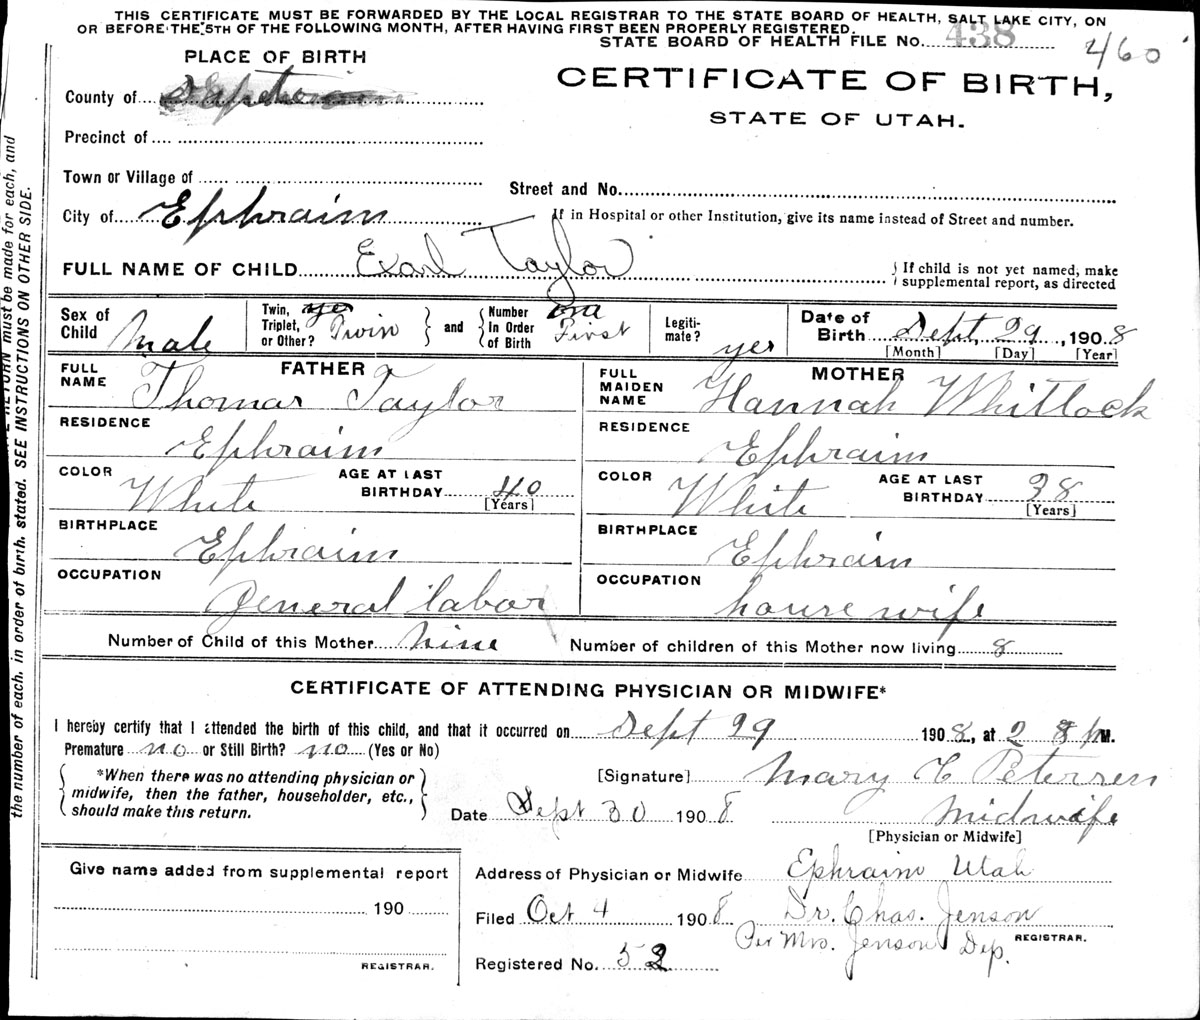 THIS CERTIFICATE MUST BE FORWARDED BY THE LOCAL REGISTRAR TO THE STATE BOARD OF HEALTH, SALT LAKE CITY, ON
OR BEFORE THE 5TH OF THE FOLLOWING MONTH, AFTER HAVING FIRST BEEN PROPERLY REGISTERED.
STATE BOARD OF HEALTH FILE No. 438 460
PLACE OF BIRTH
CERTIFICATE OF BIRTH,
STATE OF UTAH.
County of
Precinct of
Town or Village of
Street and No.
City of Ephraim
If in Hospital or other Institution, give its name instead of Street and number.
FULL NAME OF CHILD Earl Taylor
If child is not yet named, make
supplemental report, as directed
Sex of Child Male
Twin, Triplet, or Other? yes Twin
and
Number In Order of Birth First
Legiti- mate? yes
Date of Birth Sept 29, 1908
[Month] [Day] [Year]
FATHER
FULL NAME Thomas Taylor
RESIDENCE Ephraim
COLOR White
AGE AT LAST BIRTHDAY 40
[Years]
BIRTHPLACE Ephraim
OCCUPATION General labor
MOTHER
FULL MAIDEN NAME Hannah Whitlock
RESIDENCE Ephraim
COLOR White
AGE AT LAST BIRTHDAY 38
[Years]
BIRTHPLACE Ephraim
OCCUPATION house wife
Number of Child of this Mother nine
Number of children of this Mother now living 8
CERTIFICATE OF ATTENDING PHYSICIAN OR MIDWIFE*
I hereby certify that I attended the birth of this child, and that it occurred on Sept 29 1908, at 2 P M.
Premature no or Still Birth? no (Yes or No)
*When there was no attending physician or
midwife, then the father, householder, etc.,
should make this return.
[Signature] Mary C Petersen
Date Sept 30 1908 Midwife
[Physician or Midwife]
Give name added from supplemental report
190
REGISTRAR.
Address of Physician or Midwife Ephraim Utah
Filed Oct 4 1908 Dr. Chas. Jenson
REGISTRAR.
Per Mrs. Jenson Dep.
Registered No. 52
RETURN must be made for each, and
the number of each, in order of birth, stated. SEE INSTRUCTIONS ON OTHER SIDE.